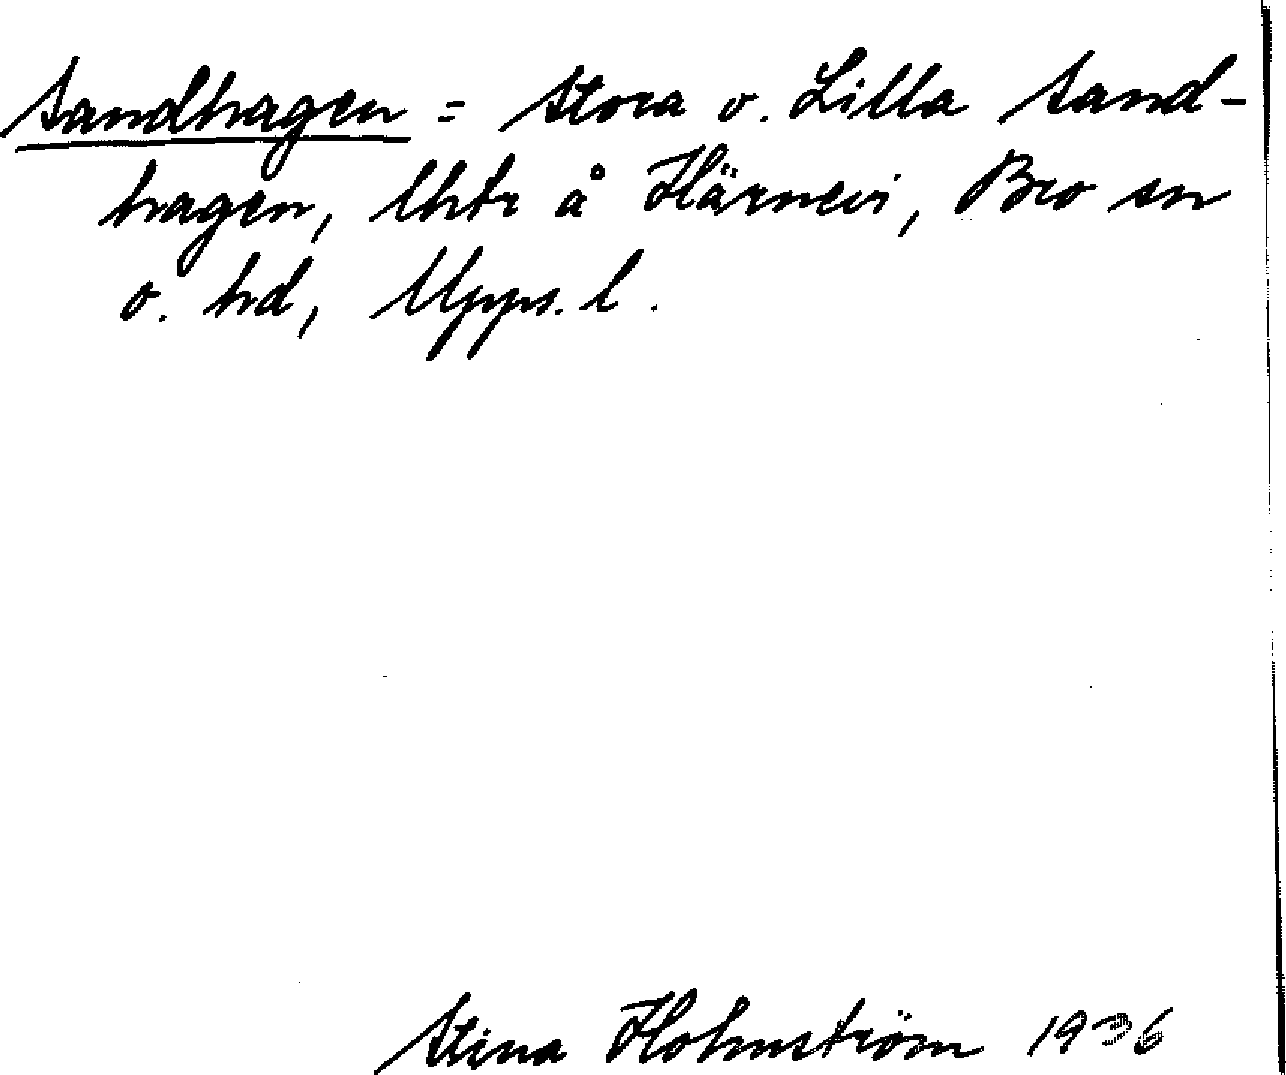 Sandhagen = Stora o. Lilla Sand-
hagen, lhtr å Härnevi, Bro sn
o. hd, Upps. l.
Stina Holmström 1936